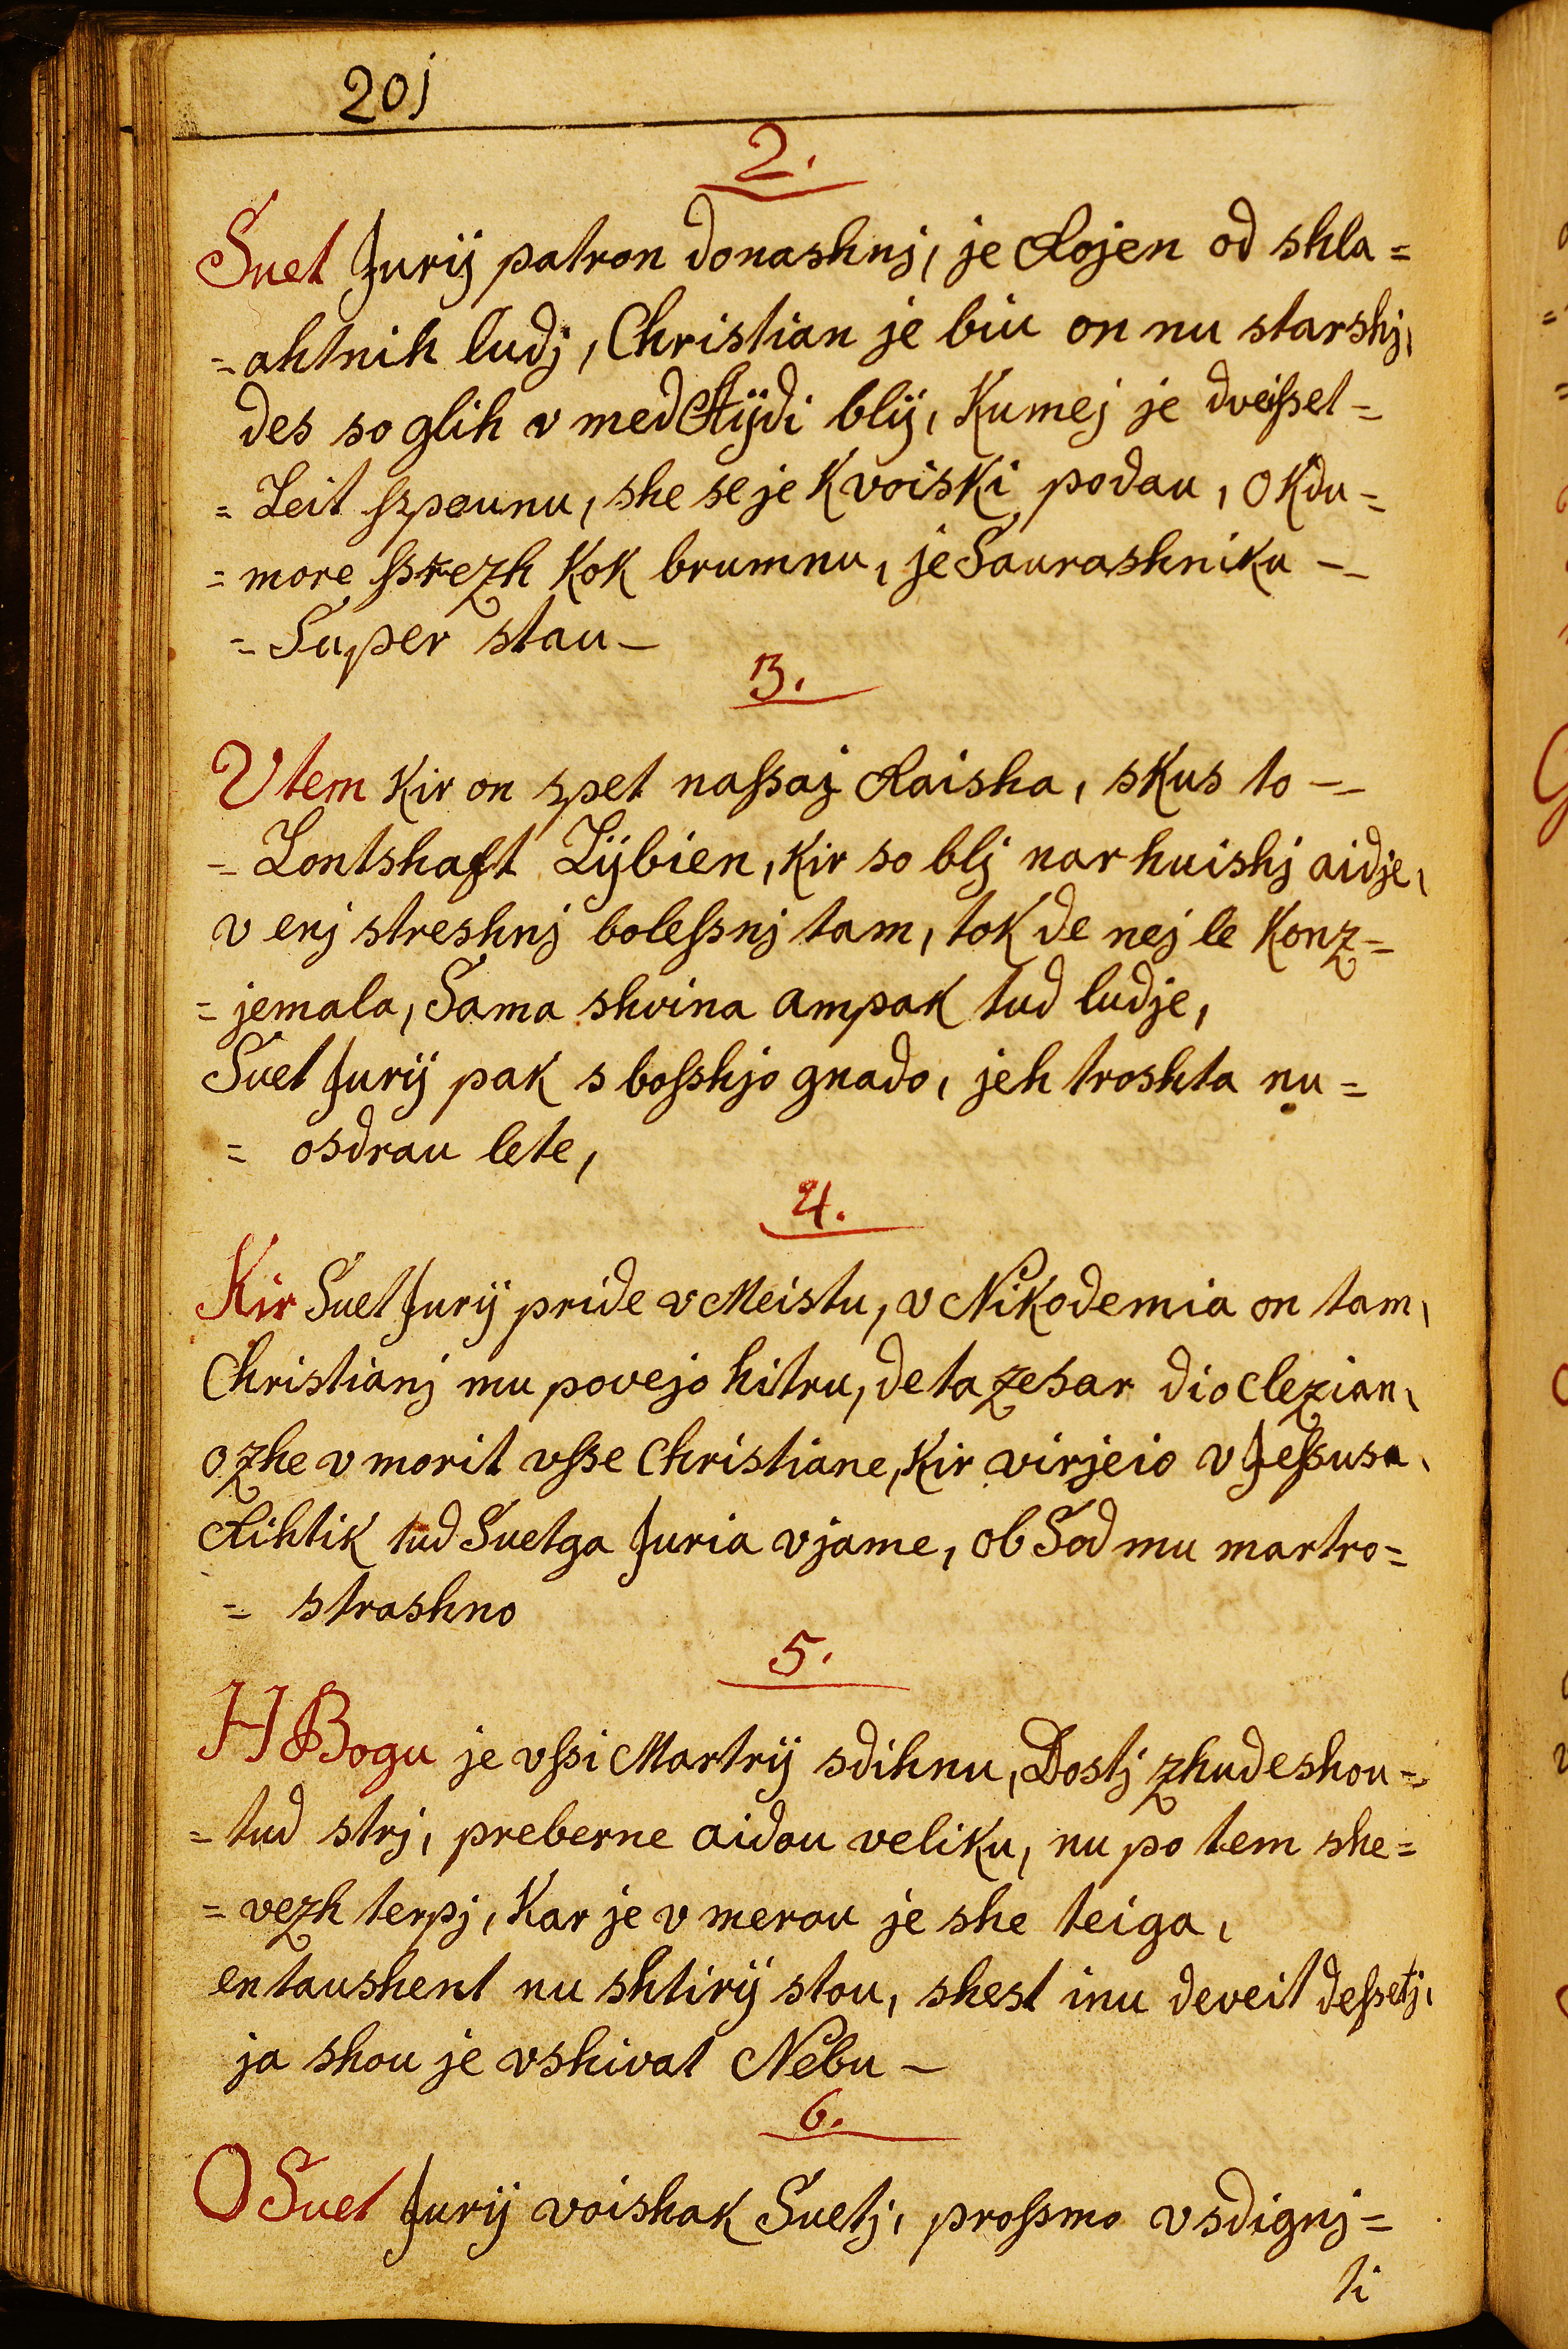 20j
2.
Suet Jurij patron donashnj, je Rojen od shla=
=ahtnih ludj, Christian je biu on nu starshj,
des so glih v med Aijdi blij, Kumej je dveisset=
=Leit sspounu, she se je K voiski podau, OKdu=
=more sskezh Kok brumnu, je Saurashniku -
=Super stau -
3.
V tem Kir on spet nassaj Raisha, sKus to -
-Lontshaft Lijbien, Kir so blj nar huishj aidje,
v enj streshnj bolessnj tam, tok de nej le Konz=
=jemala, Sama shvina ampak tud ludje,
Suet Jurij pak s bosshjo gnado, jeh troshta nu=
= osdrau lete,
4.
Kir Suet Jurij pride v Meistu, v Nikodemia on tam,
Christianj mu povejo hitru, de ta zesar dioclezian,
ozhe v morit vsse Christiane, Kir virjeio v Jessusa,
Rihtik tud Suetga Juria v jame, ob Sod mu martro=
= strashno
5.
H Bogu je vssi Martrij sdihnu, Dostj zhudeshou -
=tud strj, preberne aidou veliku, nu po tem she=
=vezh terpj, Kar je v merou je she teiga,
en taushent nu shtirij stou, shest inu deveit dessetj,
ja shou je vshivat Nebu -
6.
O Suet Jurij voishak Suetj, prossmo vsdignj=
ti